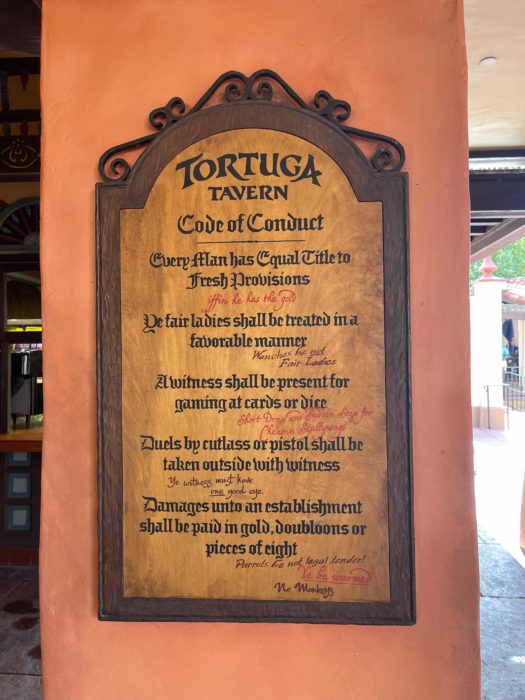 TORTUGA
TAVERN
Code of Conduct
Every Man has Equal Title to
Fresh Provisions
iffin he has the gold
Ye fair ladies shall be treated in a
favorable manner
Wenches be not
Fair Ladies
A witness shall be present for
gaming at cards or dice
Short Drop and Sudden Stop for
Cheatin Scallywags
Duels by cutlass or pistol shall be
taken outside with witness
Ye witness must have
one good eye
Damages unto an establishment
shall be paid in gold, doubloons or
pieces of eight
Parrots be not legal tender!
Ye be warned
No Monkeys